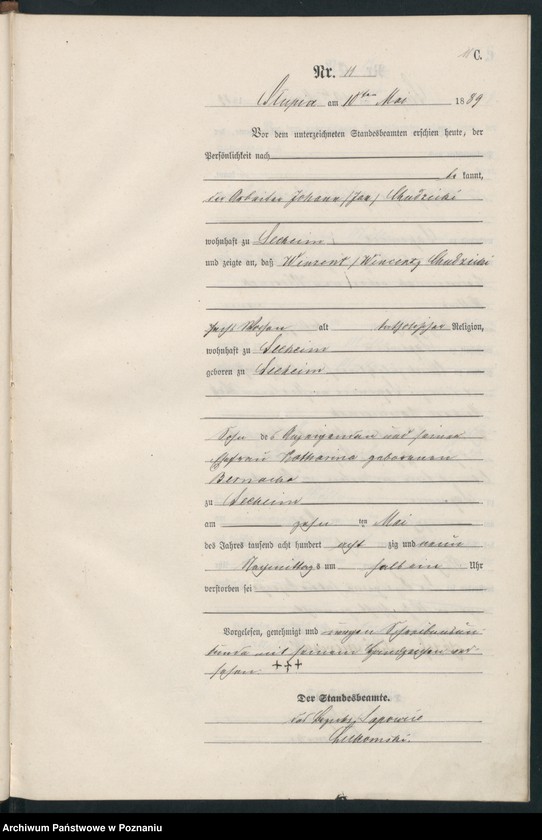 C.
Nr. 11
Slupia am 10ten Mai 1889
Vor dem unterzeichneten Standesbeamten erschien heute, der
Persönlichkeit nach
be kannt,
der Arbeiter Johann /Jan/ Chudzicki
wohnhaft zu Seeheim
und zeigte an, daß Winzent /Wincenty Chudzicki
sechs Wochen alt katholischer Religion,
wohnhaft zu Seeheim
geboren zu Seeheim
Sohn des Anzeigenden und seiner
Ehefrau Katharina geborenen
Biernacka
zu Seeheim
am zehn ten Mai
des Jahres tausend acht hundert acht zig und neun
Nachmittags um halb ein Uhr
verstorben sei
Vorgelesen, genehmigt und wegen Schreibensun
kunde mit seinem Handzeichen ver-
sehen. +++
Der Standesbeamte.
Archiwum Państwowe w Poznaniu